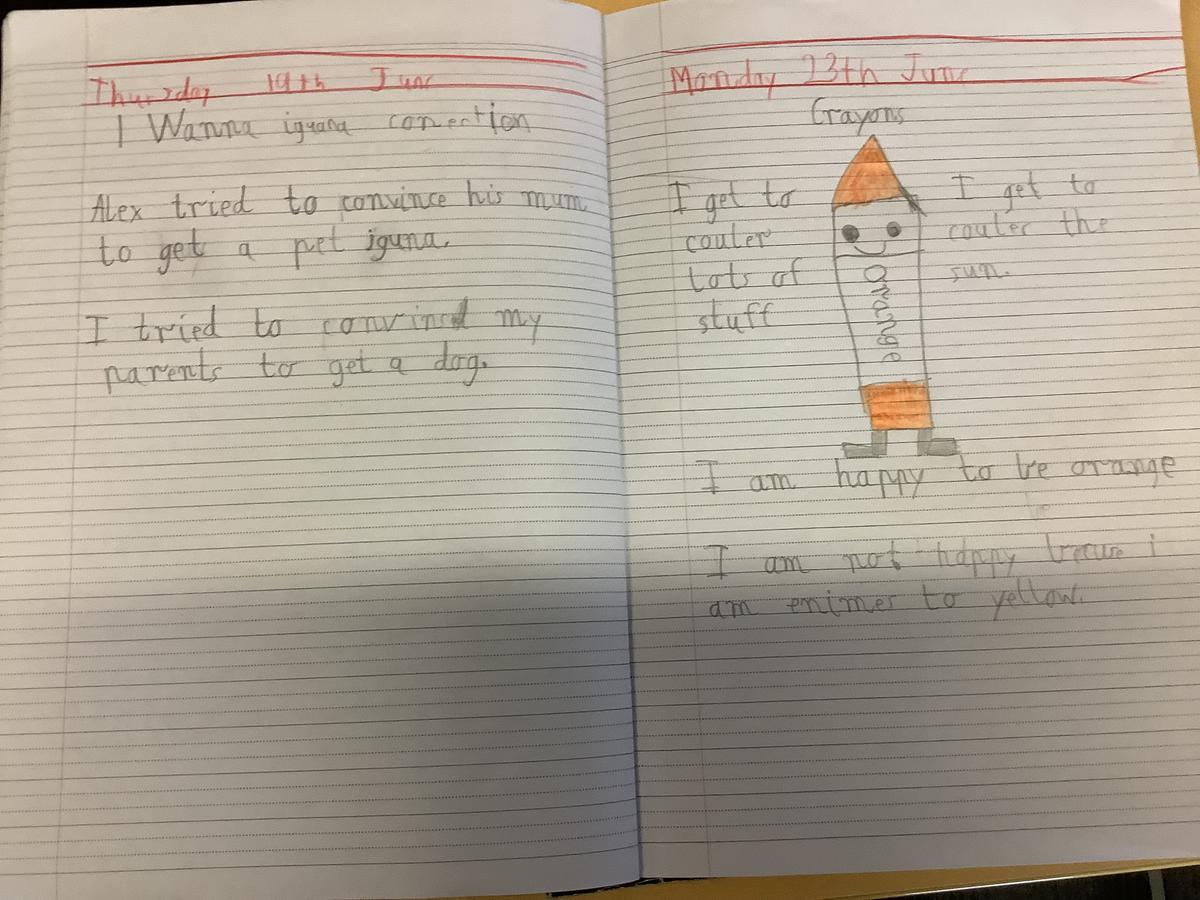 Thursday 19th June
I Wanna iguana conection
Alex tried to convince his mum
to get a pet iguna.
I tried to convince my
parents to get a dog.
Monday 23th June
Crayons
I get to
couler
Lots of
stuff
Orange
I get to
couler the
sun.
I am happy to be orange
I am not happy i
am enimes to yellow.